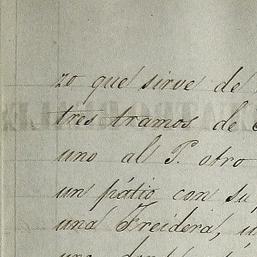 zo que sirve de
tres tramos de
uno al P. otro
un pátio con su
una Freidera, u
una